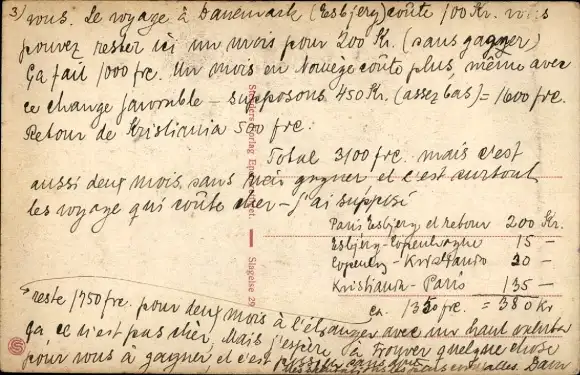 3) vous. Le voyage à Danemark (Esbjerg) coûte 100 Kr. vous
pouvez rester ici un mois pour 200 Kr. (sans gagner)
Ça fait 1000 frc. Un mois en Norvège coûte plus, même avec
ce change favorable – supposons 450 Kr. (assez bas) = 1600 frc.
Retour de Kristiania 500 frc.
Total 3100 frc. mais c'est
aussi deux mois sans rien gagner et c'est surtout
les voyage qui coûte cher – J'ai supposé
Paris Esbjerg et retour 200 Kr.
Esbjerg-Copenhague 15 –
Copenhag – Kristiania 30 –
Kristiania – Paris 135 –
ca. 1350 frc. = 380 Kr
reste 1750 frc. pour deux mois à l'étranger avec un haut
ça ce n'est pas cher, Mais j'espère à trouver quelque chose
pour vous à gagner et c'est possible sans
Stenders Forlag Eneberettiget
Slagelse 29
S